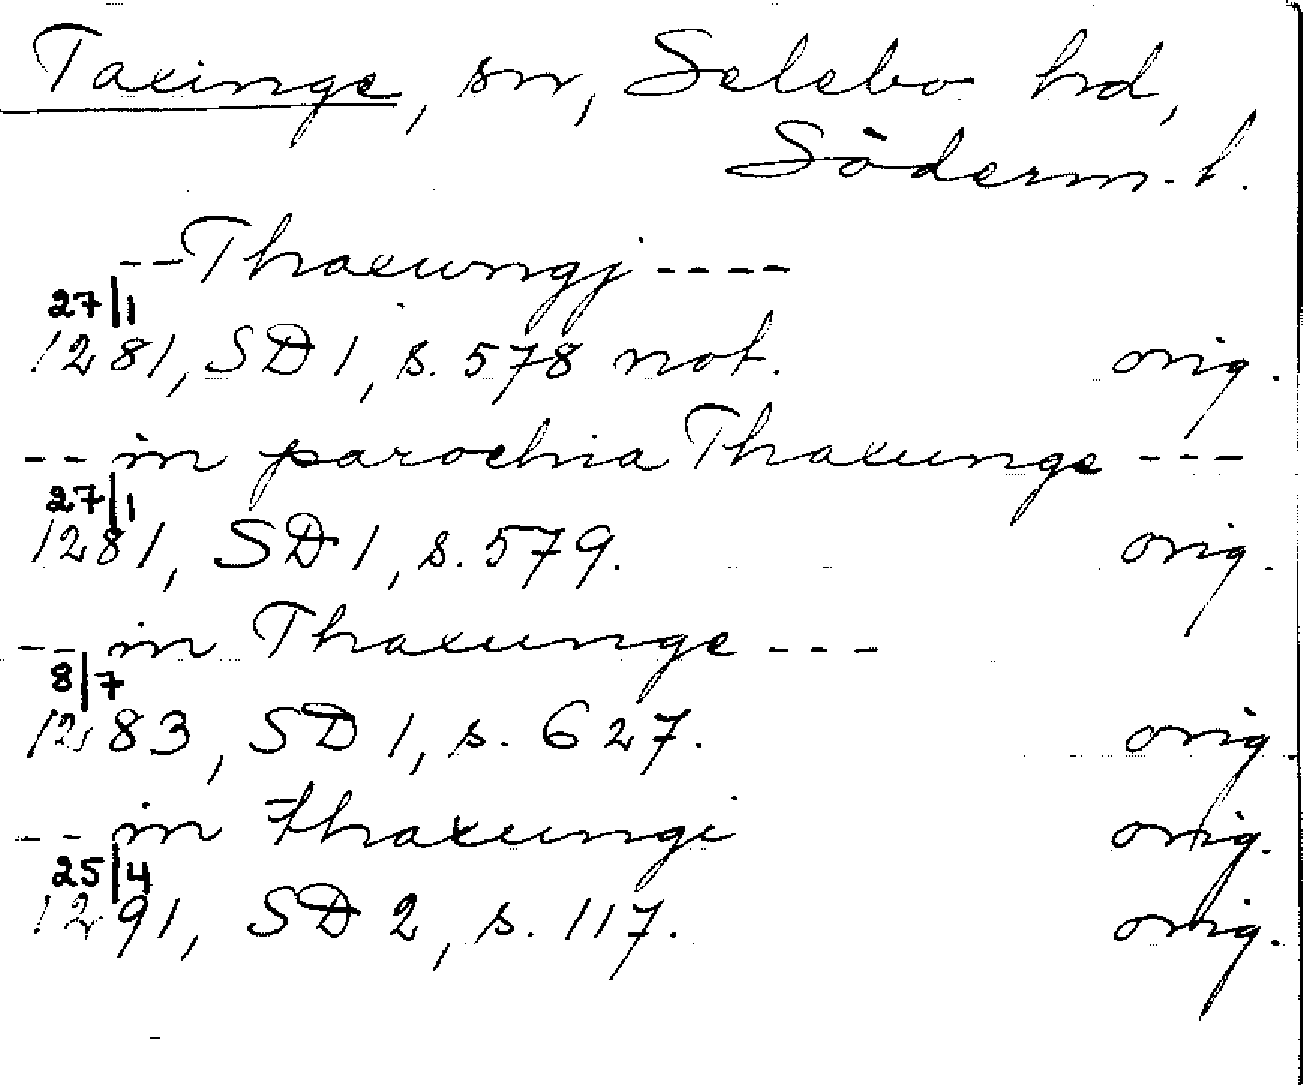 Taxinge, sn, Selebo hd,
Söderm. l.
--Thaxungj----
27/1
1281, SD 1, s. 578 not. orig.
-- in parochia Thaxunge ---
27/1
1281, SD 1, s. 579. orig.
-- in Thaxunge ---
8/7
1283, SD 1, s. 627. orig
-- in thaxungi orig.
25/4
1291, SD 2, s. 117. orig.